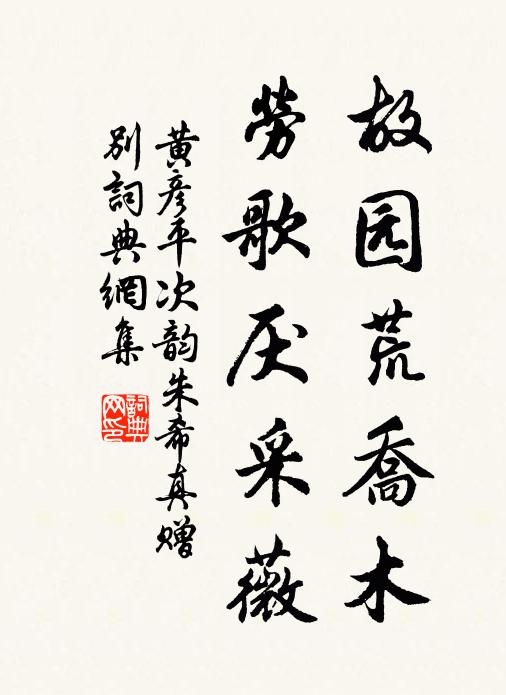 故园荒喬木
勞歌厌采薇
黄彦平次韵朱希真赠
别詞典網集
詞典
网印